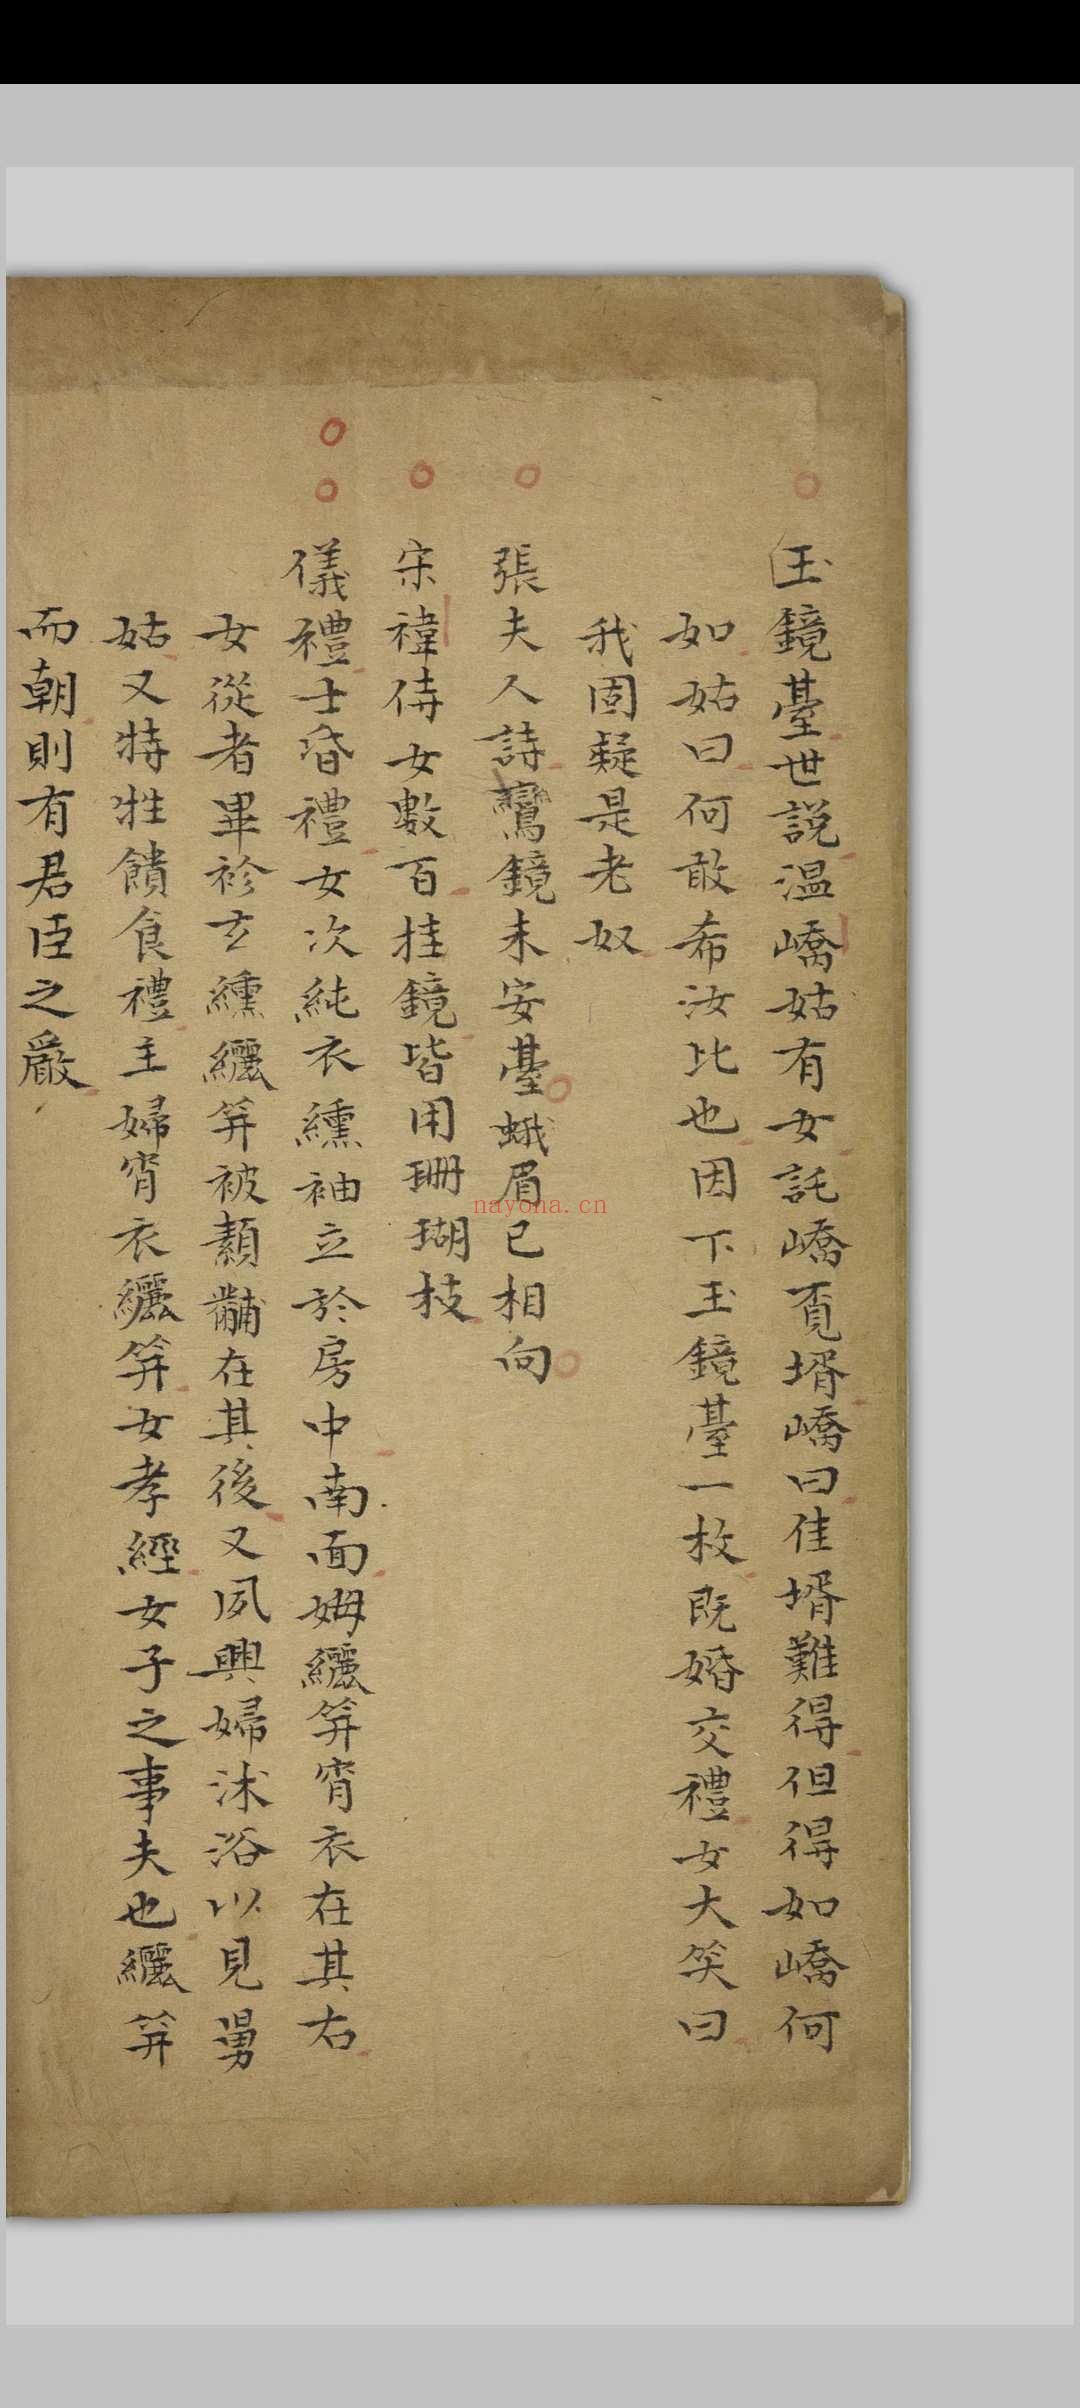 玉鏡臺世説温嶠姑有女託嶠覓壻嶠曰佳壻難得但得如嶠何
如姑曰何敢希汝比也因下玉鏡臺一枚既婚交禮女大笑曰
我固疑是老奴
張夫人詩鸞鏡未安臺蛾眉已相向
宋禕侍女數百挂鏡皆用珊瑚枝
儀禮士昏禮女次純衣纁袖立於房中南面姆纚笄宵衣在其右
女從者畢袗玄纁纚笄被顈黼在其後又夙興婦沐浴以見舅
姑又特牲饋食禮主婦宵衣纚笄女孝經女子之事夫也纚笄
而朝則有君臣之嚴
nayona.cn